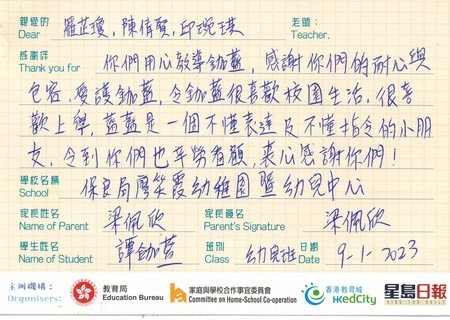 親愛的 羅芷瓊,陳倩賢,邱琬琪 老師:
Dear Teacher,
感謝您 你們用心教導鈿藍,感謝你們的耐心與
Thank you for
包容,愛護鈿藍,令鈿藍很喜歡校園生活,很喜
歡上學,藍藍是一個不懂表達及不懂指令的小朋
友,令到你們也辛勞有額,衷心感謝你們!
學校名稱 保良局廖笑霞幼稚園暨幼兒中心
School
家長姓名 梁佩欣 家長簽名 梁佩欣
Name of Parent Parent's Signature
學生姓名 譚鈿藍 班別 幼兒班 日期 9-1-2023
Name of Student Class Date
主辦機構: 教育局 家庭與學校合作事宜委員會 香港教育城 星島日報
Organisers: Education Bureau Committee on Home-School Co-operation HKedCity SING TAO DAILY